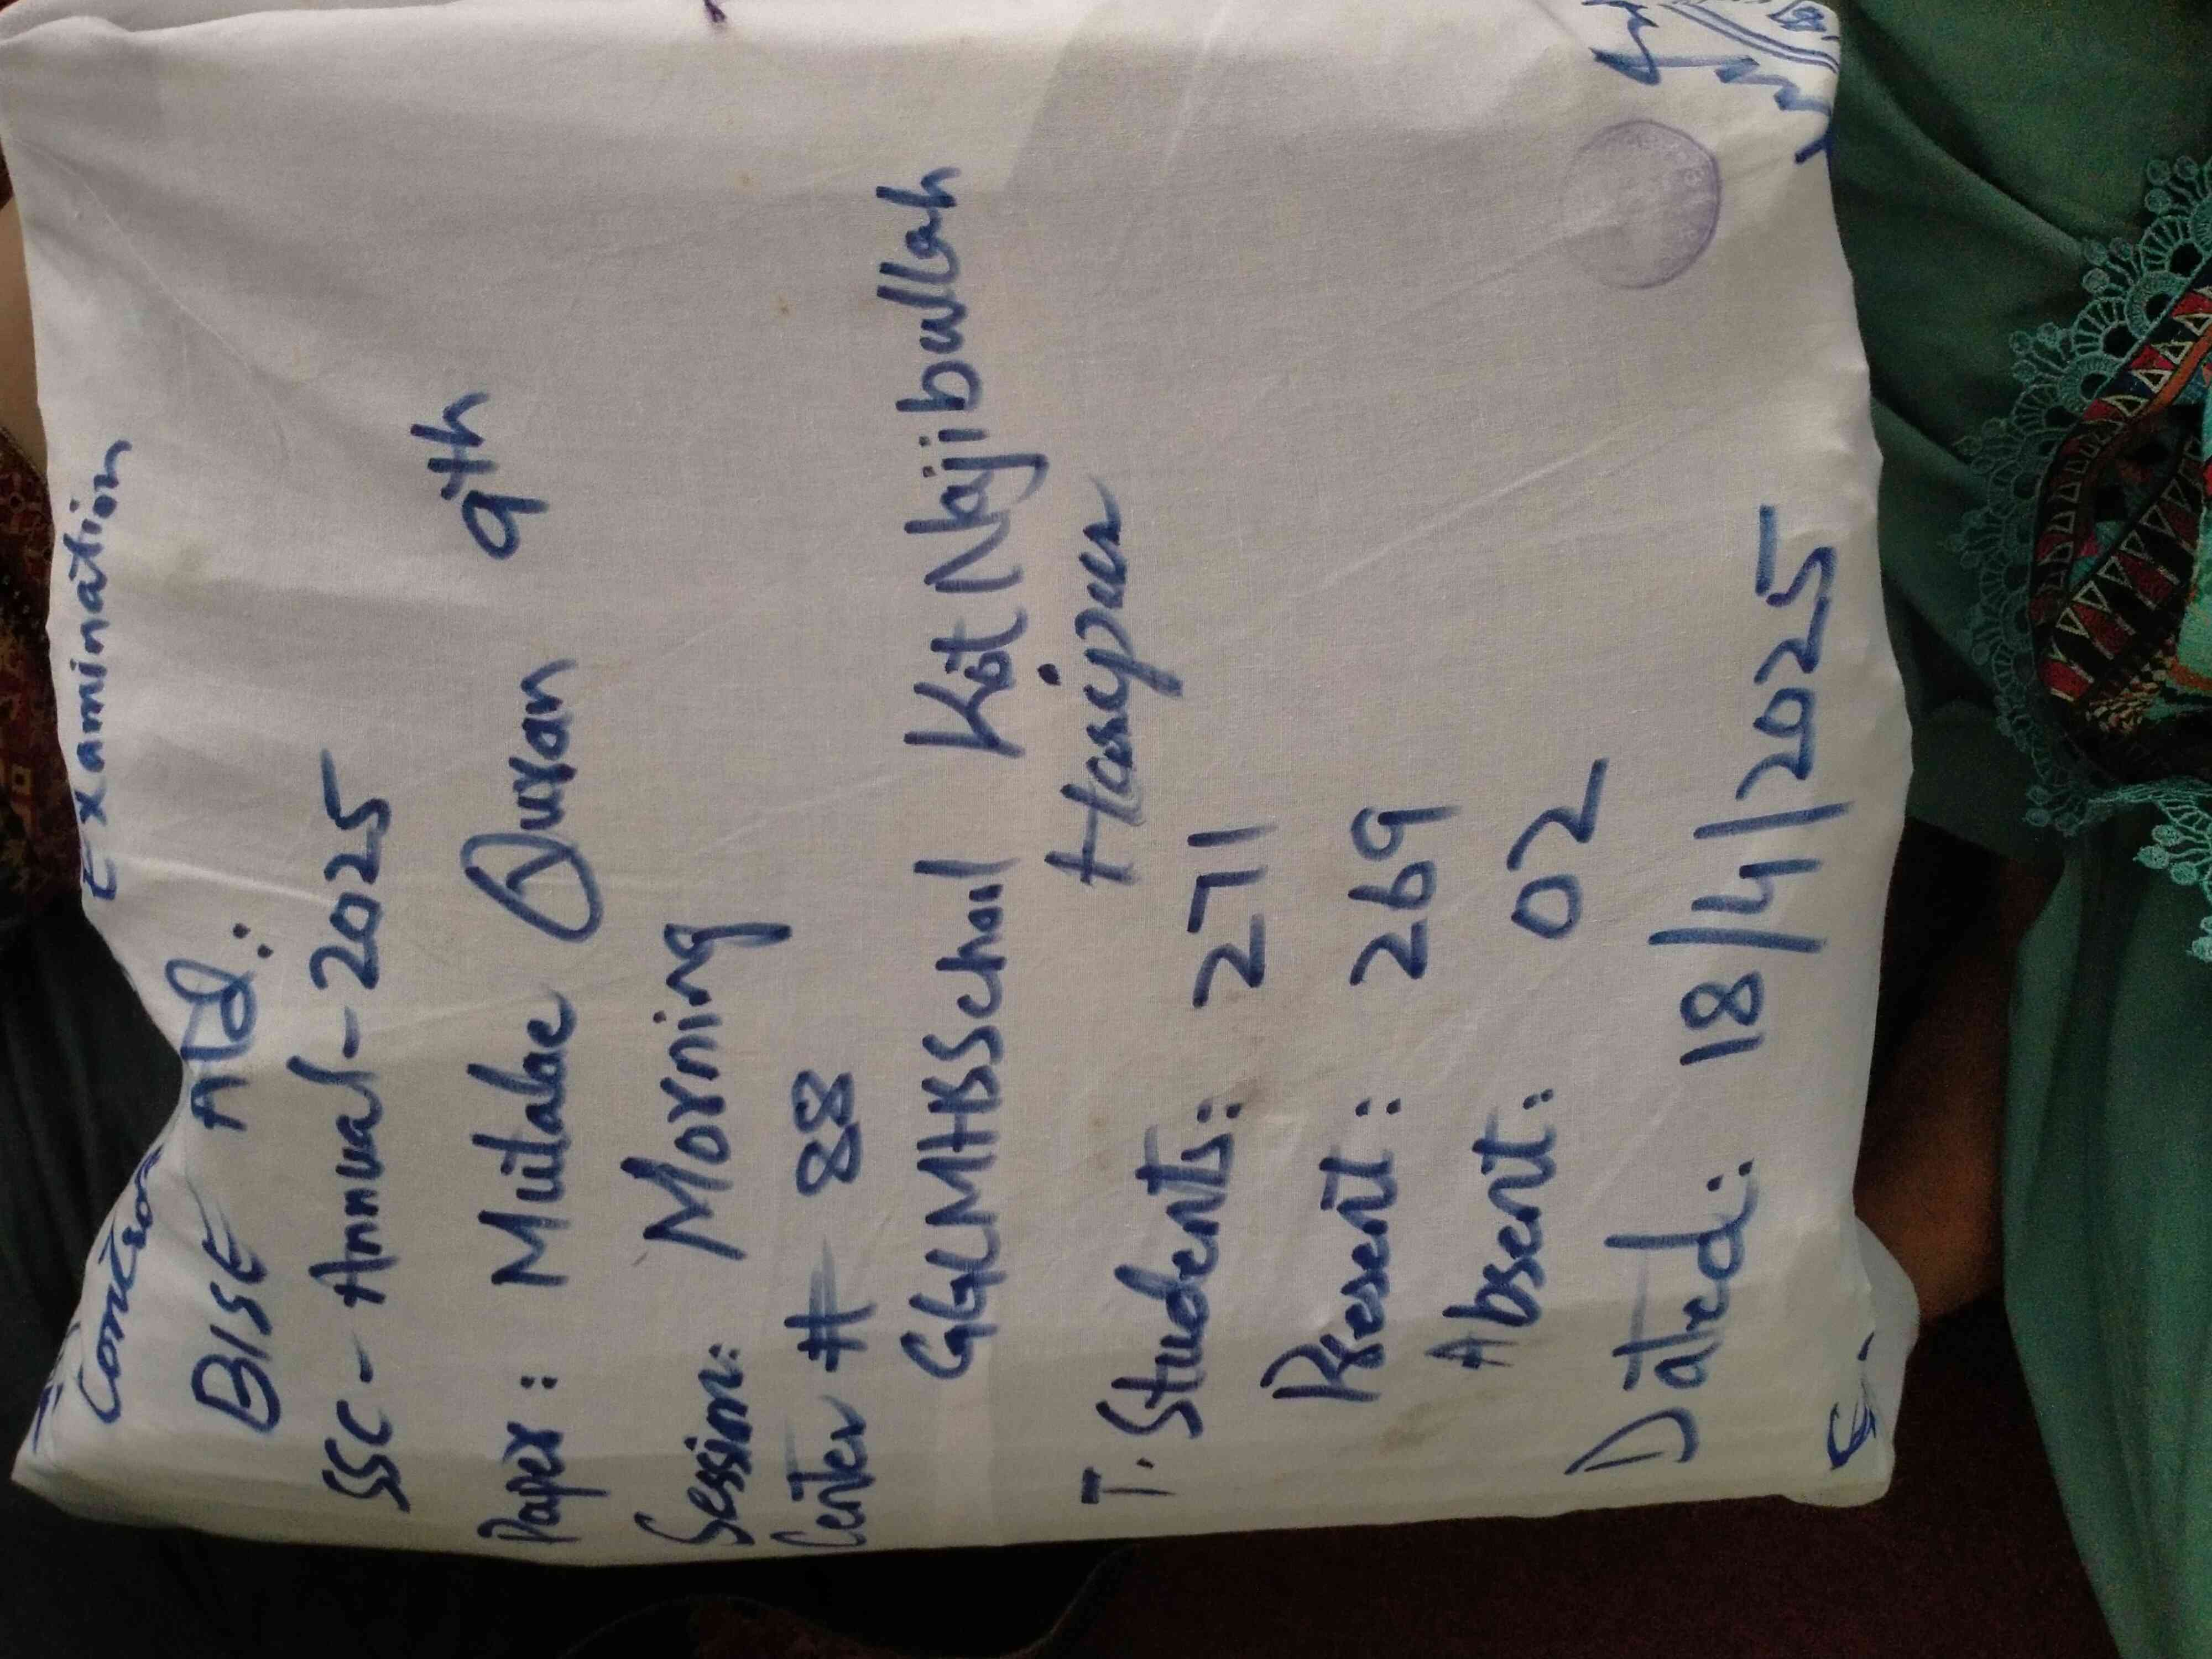 Examination
BISE ATD:
SSC - Annual - 2025
Paper: Mutalae Quran 9th
Session: Morning
Center # 88
GGLMHSSchool Kot Najibullah
Haripur
T. Students: 271
Present: 269
Absent: 02
Dated: 18/4/2025